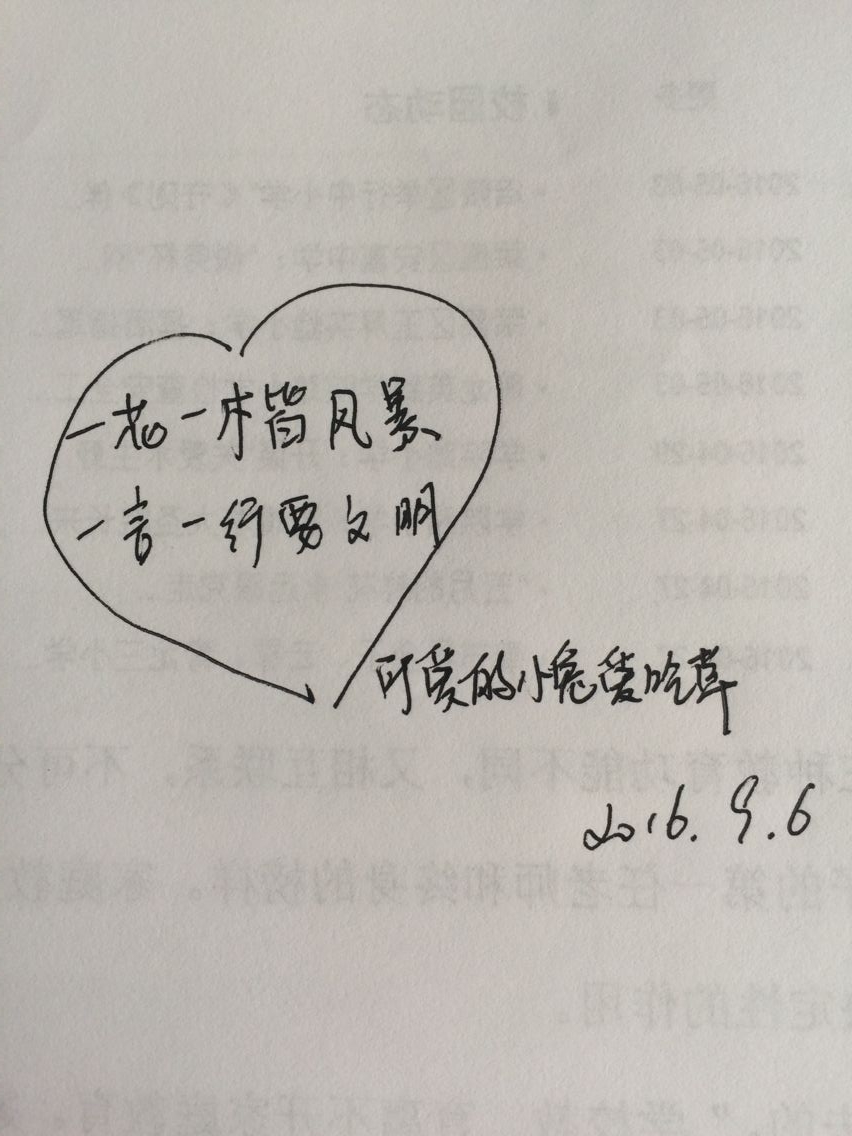 一花一木皆风景
一言一行要文明
可爱的小兔爱吃草
2016.9.6